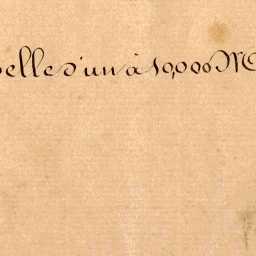 elle d'un à 10,000 M